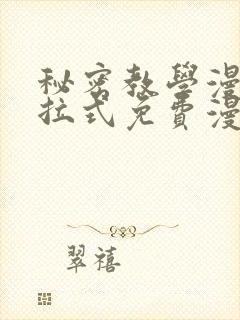 秘密教學漫
拉式免費漫
翠禧